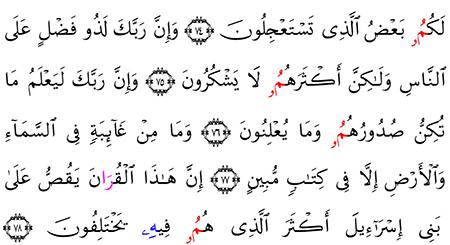 لَكُمُۥ بَعْضُ ٱلَّذِى تَسْتَعْجِلُونَ ۝٧٤ وَإِنَّ رَبَّكَ لَذُو فَضْلٍ عَلَى
ٱلنَّاسِ وَلَٰكِنَّ أَكْثَرَهُمُۥ لَا يَشْكُرُونَ ۝٧٥ وَإِنَّ رَبَّكَ لَيَعْلَمُ مَا
تُكِنُّ صُدُورُهُمُۥ وَمَا يُعْلِنُونَ ۝٧٦ وَمَا مِنْ غَآئِبَةٍ فِى ٱلسَّمَآءِ
وَٱلْأَرْضِ إِلَّا فِى كِتَٰبٍ مُّبِينٍ ۝٧٧ إِنَّ هَٰذَا ٱلْقُرَانَ يَقُصُّ عَلَىٰ
بَنِى إِسْرَآءِيلَ أَكْثَرَ ٱلَّذِى هُمُۥ فِيهِۦ يَخْتَلِفُونَ ۝٧٨